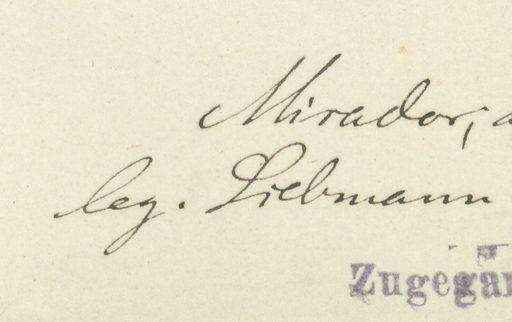 Mirador,
leg. Liebmann
Zugegan